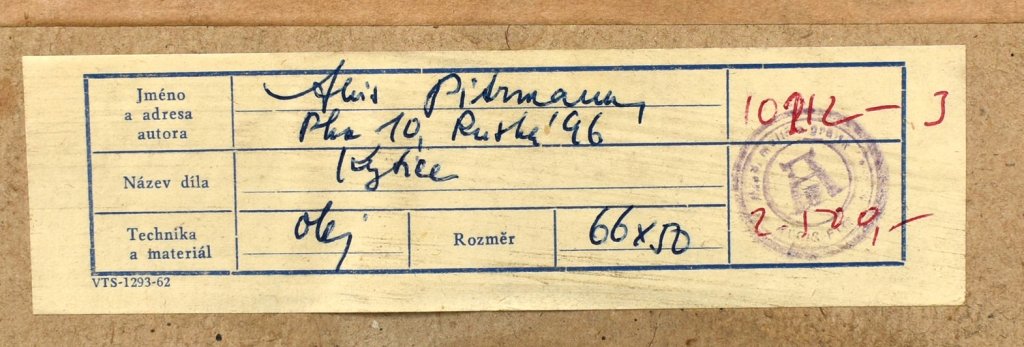 Jméno
a adresa
autora
Alois Pitrmann,
Pha 10, Ruská 96
Název díla
Kytice
Technika
a materiál
olej
Rozměr
66x50
2 500,-
VTS-1293-62